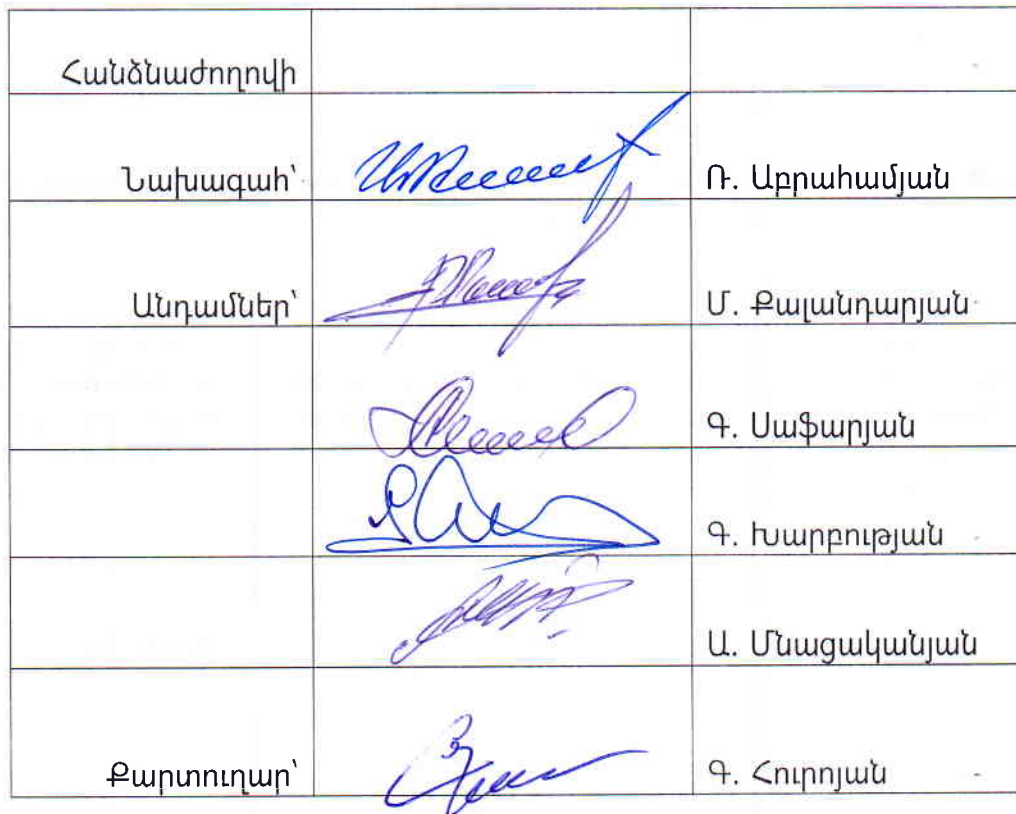 Հանձնաժողովի
Նախագահ՝ Ռ. Աբրահամյան
Անդամներ՝ Մ. Քալանդարյան
Գ. Սաֆարյան
Գ. Խարբության
Ա. Մնացականյան
Քարտուղար՝ Գ. Հուրոյան